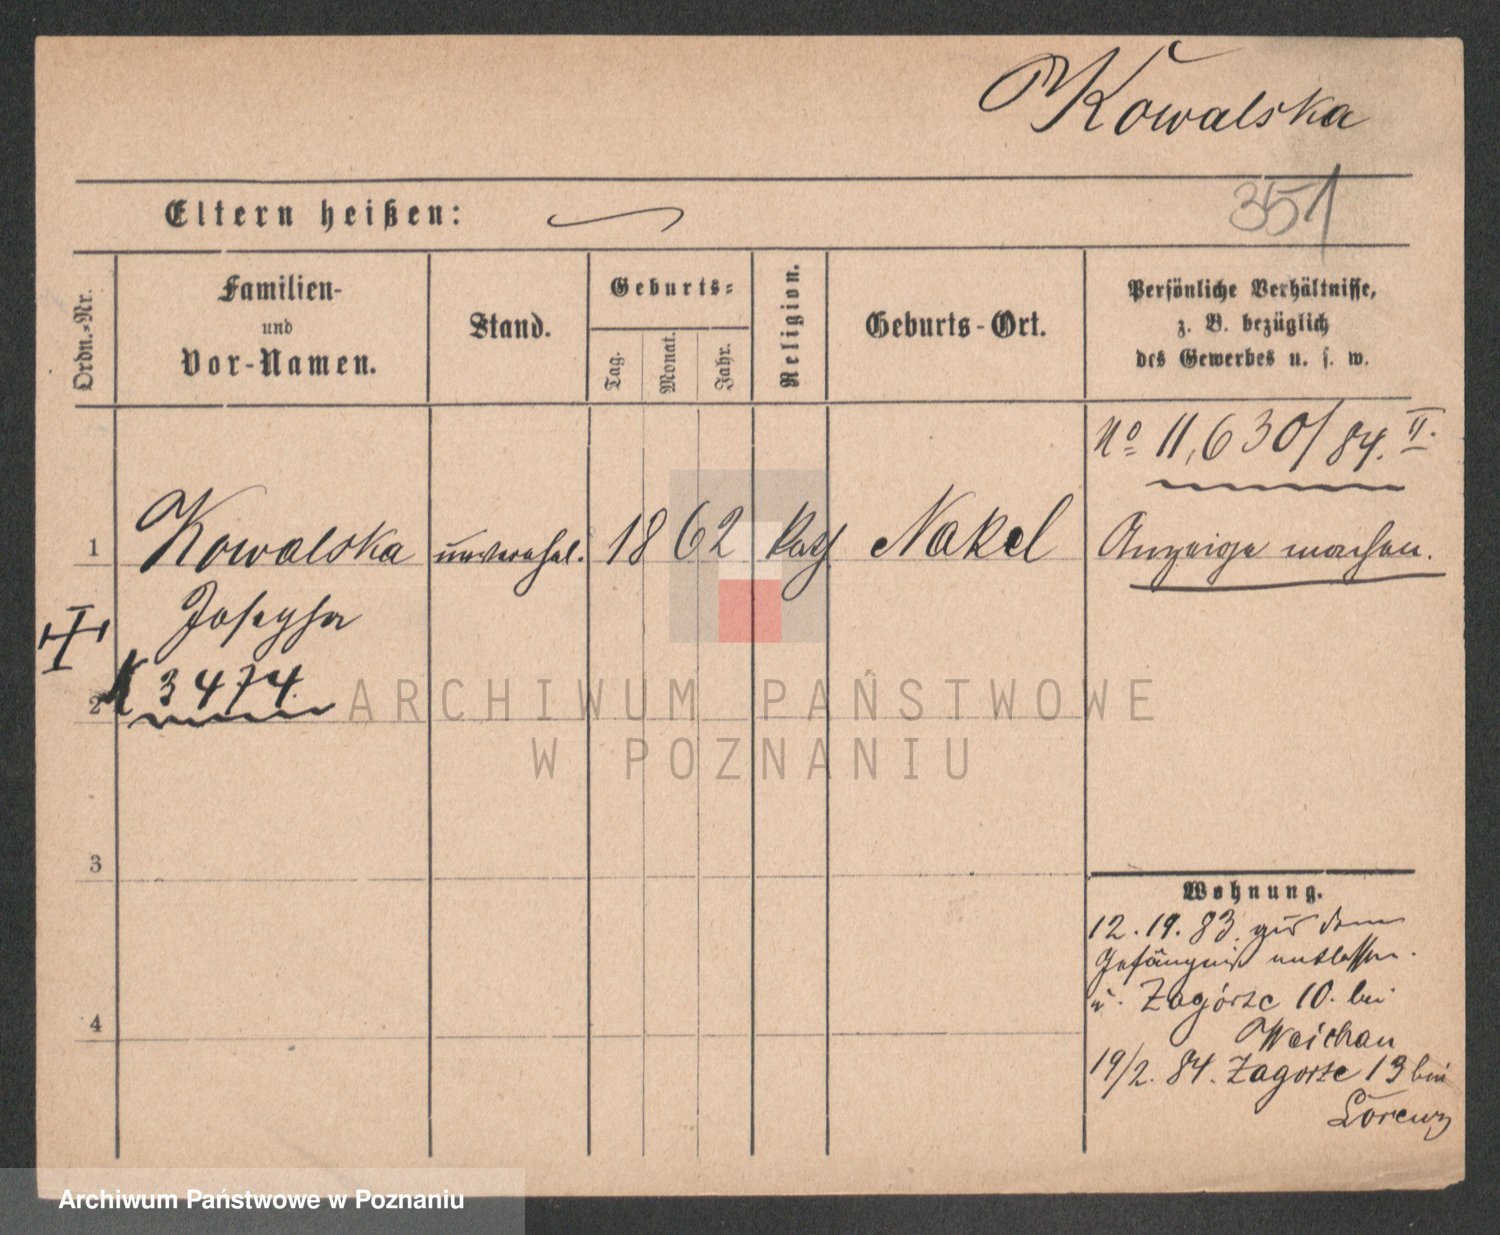 Kowalska
351
Eltern heißen:
Ordn.-Nr.
Familien-
und
Vor-Namen.
Stand.
Geburts-
Tag.
Monat.
Jahr.
Religion.
Geburts-Ort.
Persönliche Verhältnisse,
z. B. bezüglich
des Gewerbes u. s. w.
No 11,630/84. II.
1 Kowalska unverehel. 1862 kath Nakel Anzeige machen.
Josepha
2 3474.
ARCHIWUM PAŃSTWOWE
W POZNANIU
3
Wohnung.
12. 19. 83. aus dem
Gefängniß entlassen.
n. Zagórze 10. bei
4
Weichan
19/2. 84. Zagorze 13 bei
Lorenz
Archiwum Państwowe w Poznaniu